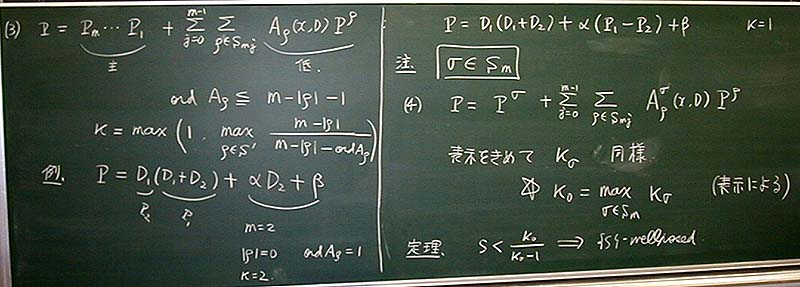 (3) P = Pm ⋯ P1 + Σ_{j=0}^{m-1} Σ_{ρ∈S_{mj}} Aρ(x,D) P^ρ
主 低.
ord Aρ ≦ m-|ρ|-1
K = max (1, max_{ρ∈S'} (m-|ρ|)/(m-|ρ|-ord Aρ))
例. P = D1(D1+D2) + αD2 + β
m=2
|ρ|=0 ord Aρ=1
K=2.
P = D1(D1+D2) + α(P1-P2) + β K=1
注. σ∈Sm
(4) P = P^σ + Σ_{j=0}^{m-1} Σ_{ρ∈S_{mj}} A^σ_ρ(x,D) P^ρ
表示をきめて Kσ 同様
K0 = max_{σ∈Sm} Kσ (表示による)
定理. S < K0/(K0-1) ⟹ {S}-wellposed.